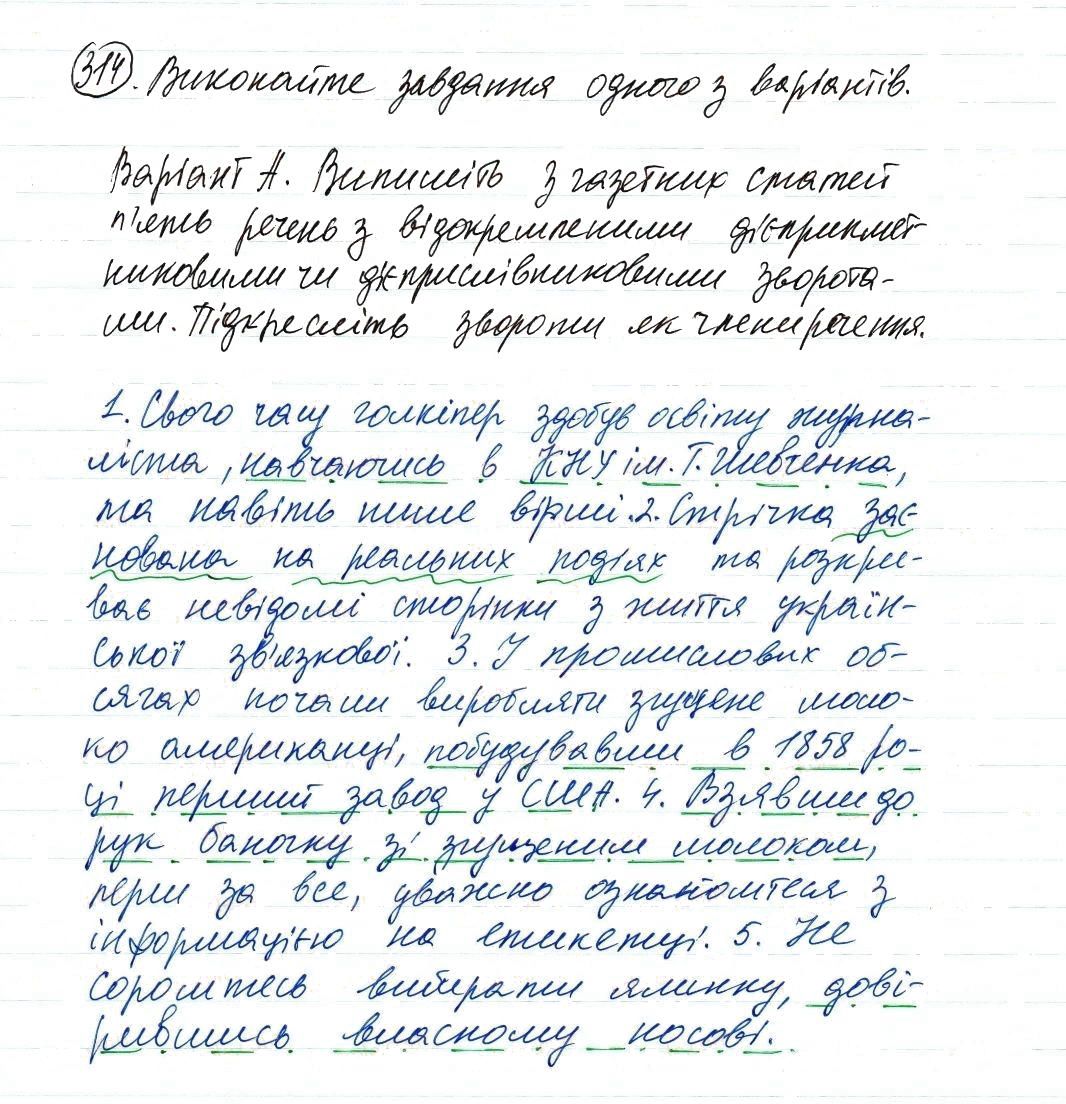 314. Виконайте завдання одного з варіантів.
Варіант А. Випишіть з газетних статей
п'ять речень з відокремленими дієприкмет-
никовими чи дієприслівниковими зворота-
ми. Підкресліть звороти як члени речення.
1. Свого часу голкіпер здобув освіту журна-
ліста, навчаючись в КНУ ім. Т. Шевченка,
та навіть пише вірші. 2. Стрічка зас-
нована на реальних подіях та розкри-
ває невідомі сторінки з життя україн-
ської зв'язкової. 3. У промислових об-
сягах почали виробляти згущене моло-
ко американці, побудувавши в 1858 ро-
ці перший завод у США. 4. Взявши до
рук баночку зі згущеним молоком,
перш за все, уважно ознайомтеся з
інформацією на етикетці. 5. Не
соромтесь вибирати ялинку, дові-
рившись власному носові.